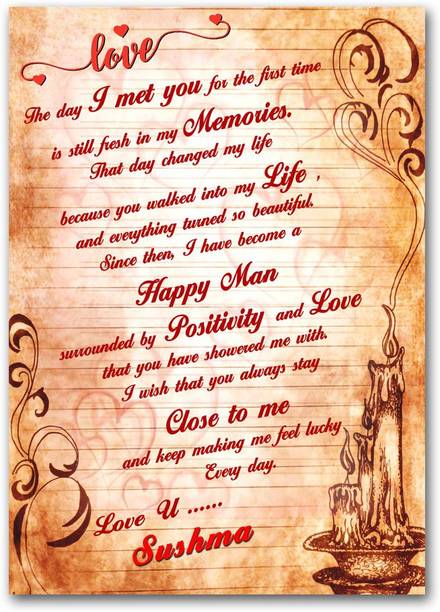 love
The day I met you for the first time
is still fresh in my Memories.
That day changed my life
because you walked into my Life ,
and everything turned so beautiful.
Since then, I have become a
Happy Man
surrounded by Positivity and Love
that you have showered me with.
I wish that you always stay
Close to me
and keep making me feel lucky
Every day.
Love U ......
Sushma